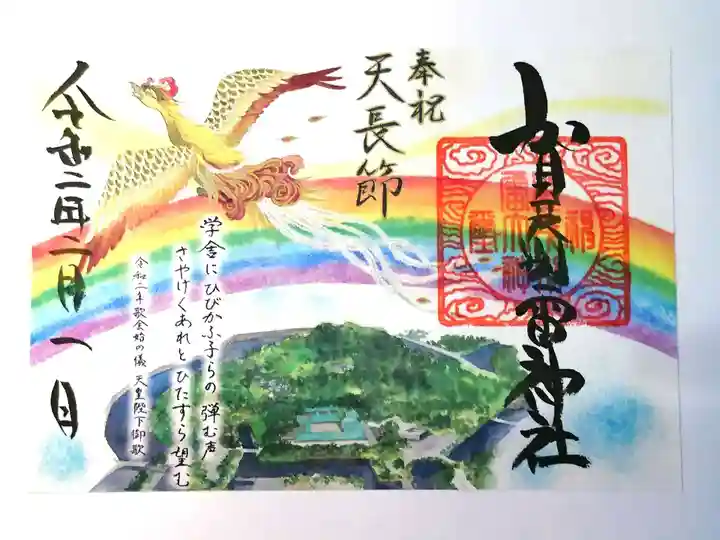 賀茂別雷神社
奉祝
天長節
学舎にひびかふ子らの弾む声
さやけくあれとひたすら望む
令和二年歌会始の儀 天皇陛下御歌
令和二年二月一日